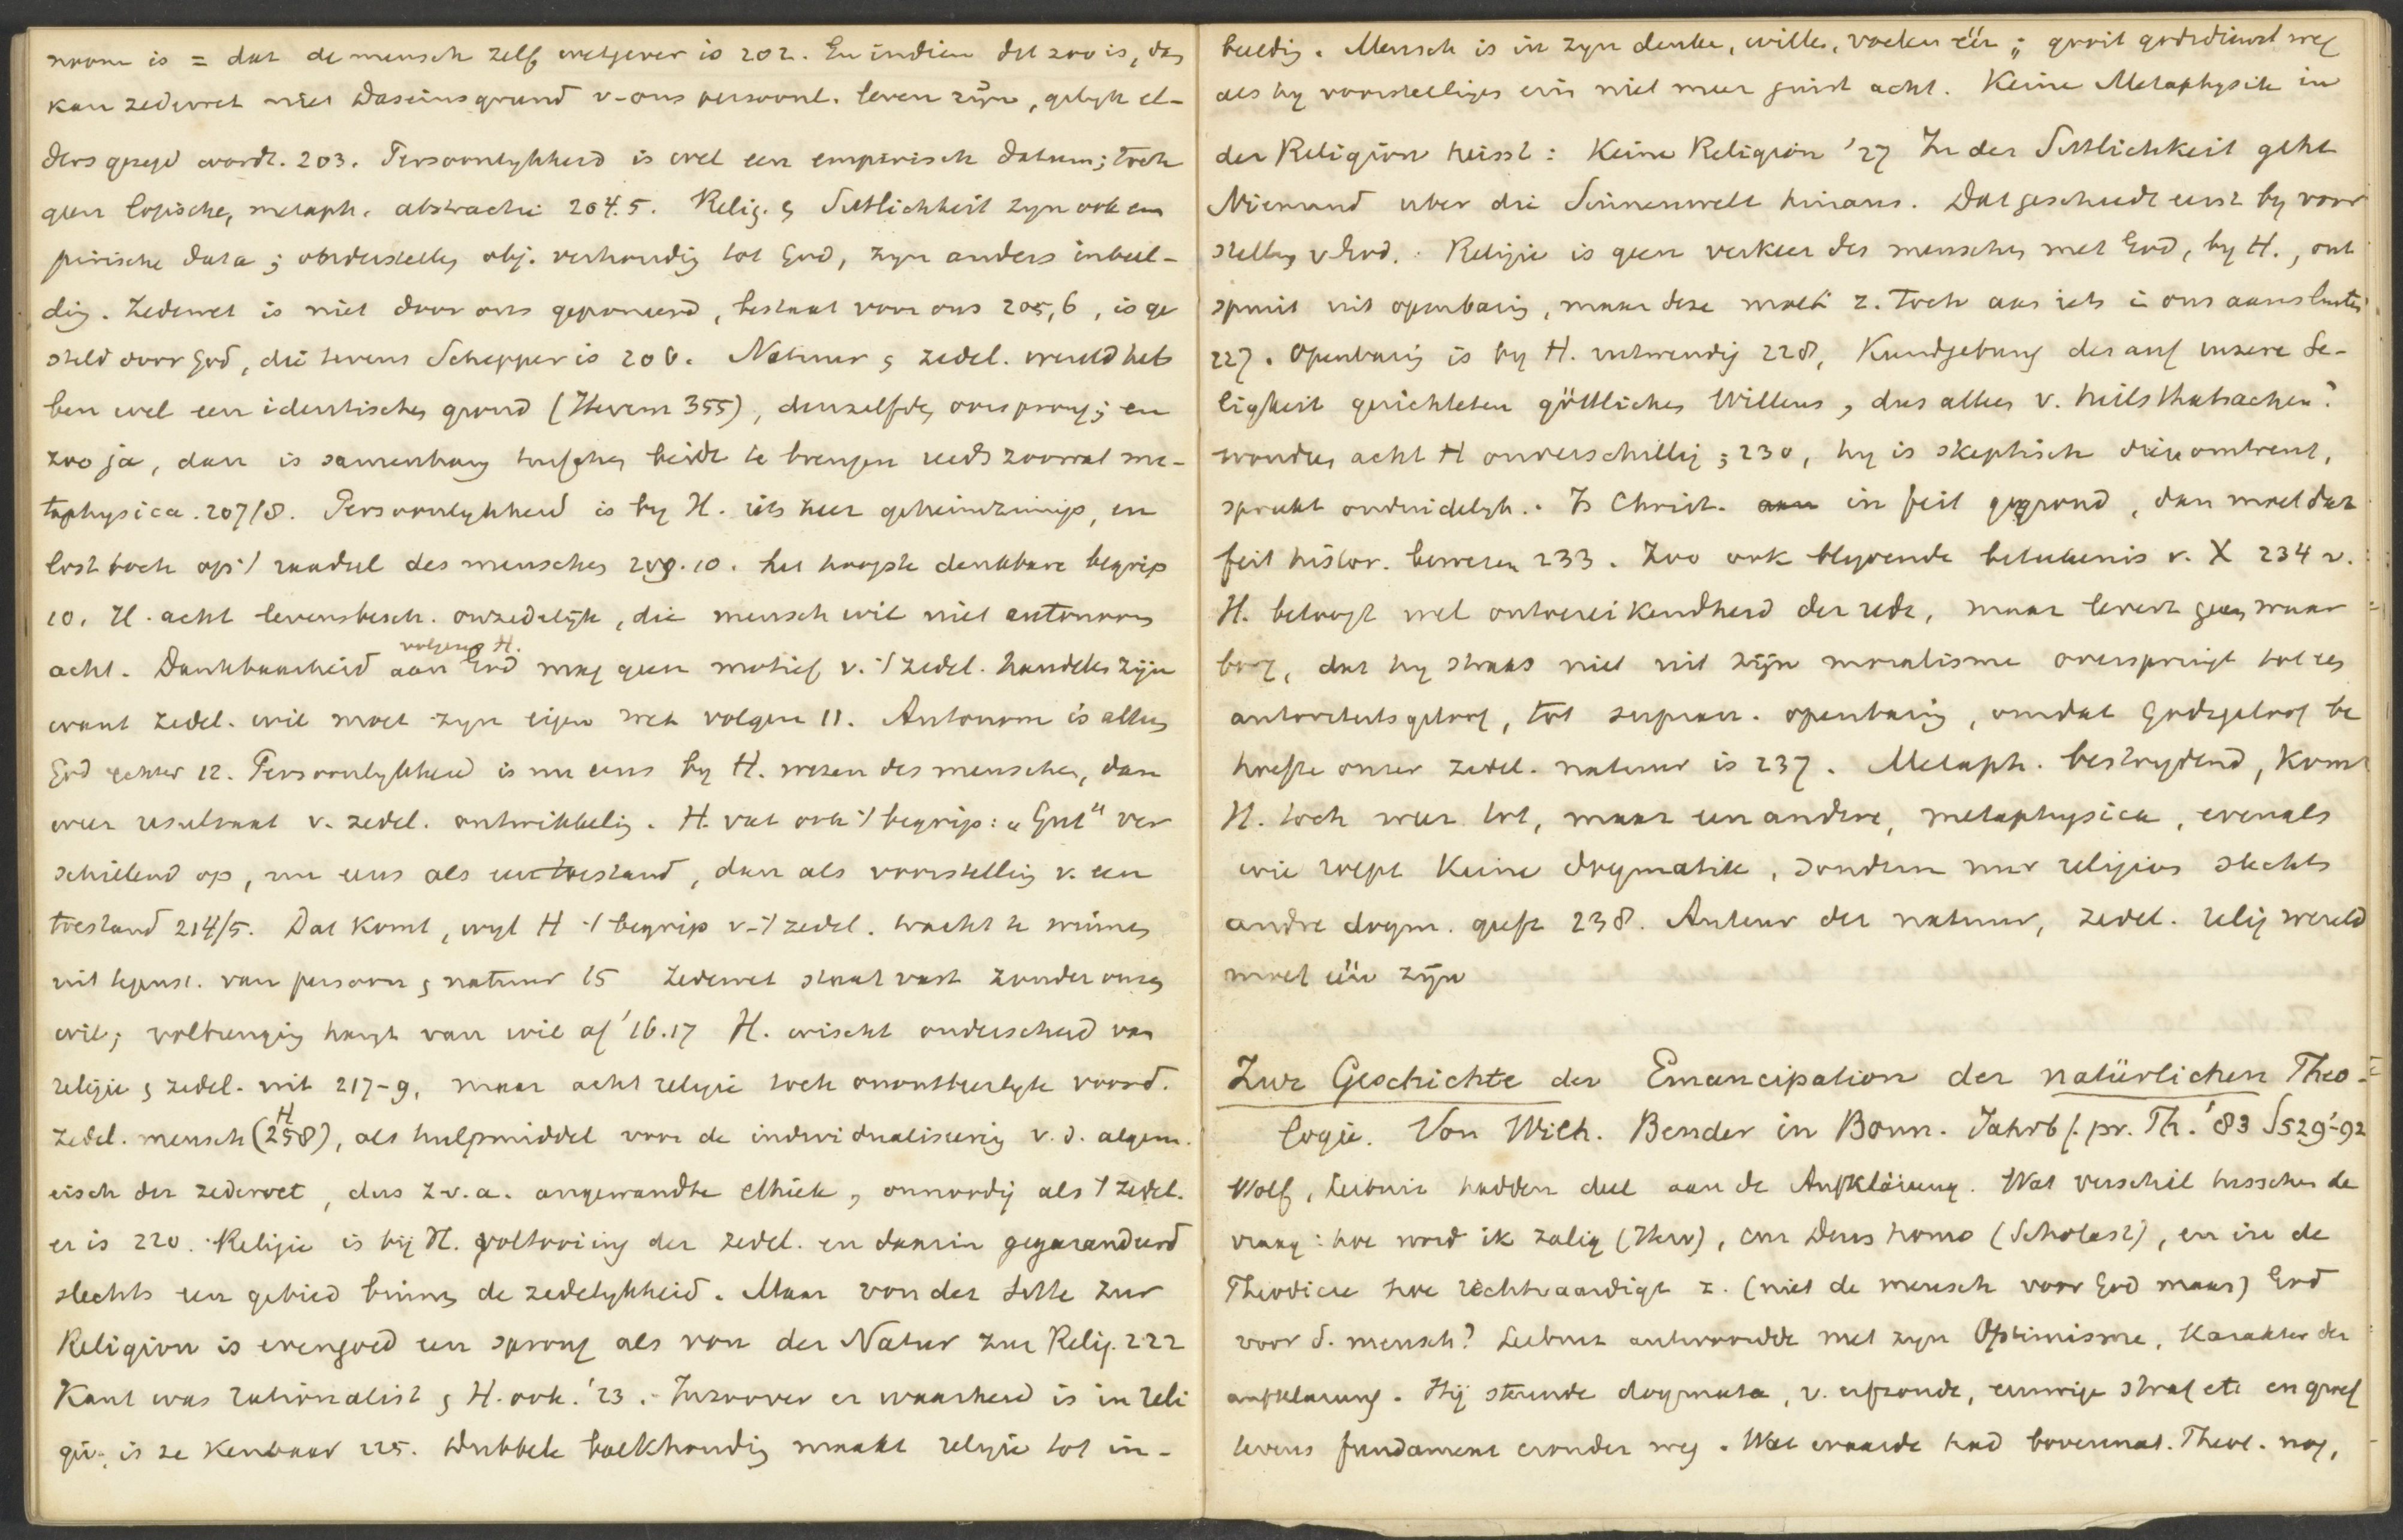 noom is = dat de mensch zelf wetgever is 202. En indien dit zoo is, dan
kan zedewet niet Daseinsgrund v. ons persoonl. leven zijn, gelyk el-
ders gezegd wordt. 203. Persoonlykheid is wel een empirisch datum; toch
geen logische, metaph. abstractie 204.5. Relig. & Sittlichkeit zyn ook em
pirische data; onderstellen obj. verhouding tot God, zyn anders inbeel-
ding. Zedewet is niet door ons geponeerd, bestaat voor ons 205,6, is ge
steld door God, die tevens Schepper is 206. Natuur & zedel. wereld heb
ben wel een identischen grond (Herrm 355), denzelfden oorsprong; en
zoo ja, dan is samenhang tusschen beide te brengen reeds zoowat me-
taphysica. 207/8. Persoonlykheid is by H. iets heel geheimzinnigs, en
lost toch op 't raadsel des menschen 209.10. het hoogste denkbare begrip
10. H. acht levensbesch. onzedelijk, die mensch wil niet autonoom
volgens H.
acht. Dankbaarheid aan God mag geen motief v. 't zedel. handelen zijn
want zedel. wil moet zyn eigen wet volgen 11. Autonom is alleen
God echter 12. Persoonlykheid is nu eens by H. wezen des menschen, dan
weer resultaat v. zedel. ontwikkeling. H. vat ook 't begrip: „Gut" ver
schillend op, nu eens als een toestand, dan als voorstelling v. een
toestand 214/5. Dat komt, wyl H 't begrip v. 't zedel. tracht te winnen
uit tegenst. van persoon & natuur 15 Zedewet staat vast zonder onzen
wil; volbrenging hangt van wil af '16.17 H. wischt onderscheid van
religie & zedel. uit 217-9, maar acht religie toch onontbeerlyk voor d.
zedel. mensch (H 258), als hulpmiddel voor de individualiseering v. d. algem.
eisch der zedewet, dus z.v.a. angewandte Ethik, onnoodig als 't zedel.
er is 220. Religie is bij H. voltooiing der zedel. en daarin gegarandeerd
slechts een gebied binnen de zedelykheid. Maar von der Sitte zur
Religion is evengoed een sprong als von der Natur zur Relig. 222
Kant was rationalist & H. ook. '23. Inzoover er waarheid is in reli
gie, is ze kenbaar 225. Dubbele boekhouding maakt religie tot in-
beelding. Mensch is in zyn denken, willen, voelen één; gooit godsdienst weg
als hy voorstellingen ervan niet meer juist acht. Keine Metaphysik in
der Religion heisst: Keine Religion '27 In der Sittlichkeit geht
Niemand uber die Sinnenwelt hinaus. Dat geschiedt eerst by voor
stelling v. God. Religie is geen verkeer des menschen met God, by H., ont
spruit uit openbaring, maar deze moet z. toch aan iets in ons aansluiten
227. Openbaring is by H. nutwendig 228, Kundgebung des auf unsere Se-
ligkeit gerichteten göttlichen Willens, dus alleen v. heilsthatsachen?
wonder, acht H onverschillig; 230, hy is skeptisch dienomtrent,
spreekt onduidelyk. Is Christ. in feit gegrond, dan moet dat
feit histor. bewezen 233. Zoo ook blyvende beteekenis v. X 234 v.
H. betoogt wel ontoereikendheid der rede, maar levert geen waar
borg, dat hy straks niet uit zijn moralisme overspringt tot een
autoriteitsgeloof, tot supran. openbaring, omdat Godsgeloof be
hoefte onzer zedel. natuur is 237. Metaph. bestrydend, komt
H. toch weer tot, maar een andere, metaphysica, evenals
wie roept Keine dogmatik, sondern nur religion slechts
andre dogm. geeft 238. Auteur der natuur, zedel. relig wereld
moet één zijn
Zur Geschichte der Emancipation der natürlichen Theo-
logie. Von Wilh. Bender in Bonn. Jahrb f. pr. Th. '83 S529-'92
Wolf, Leibniz hadden deel aan de Aufklärung. Wat verschil tusschen de
vraag: hoe word ik zalig (Herv), cur Deus homo (Scholast), en in de
Theodicee hoe rechtvaardigt z. (niet de mensch voor God maar) God
voor d. mensch? Leibniz antwoordde met zyn Optimisme, Karakter der
aufklarung. Hij steunde dogmata, v. erfzonde, eeuwige straf etc en groef
tevens fundament eronder weg. Wat waarde had bovennat. Theol. nog,